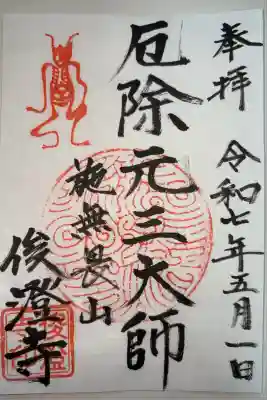 奉拝 令和七年五月一日
厄除元三大師
施無畏山
俊澄寺